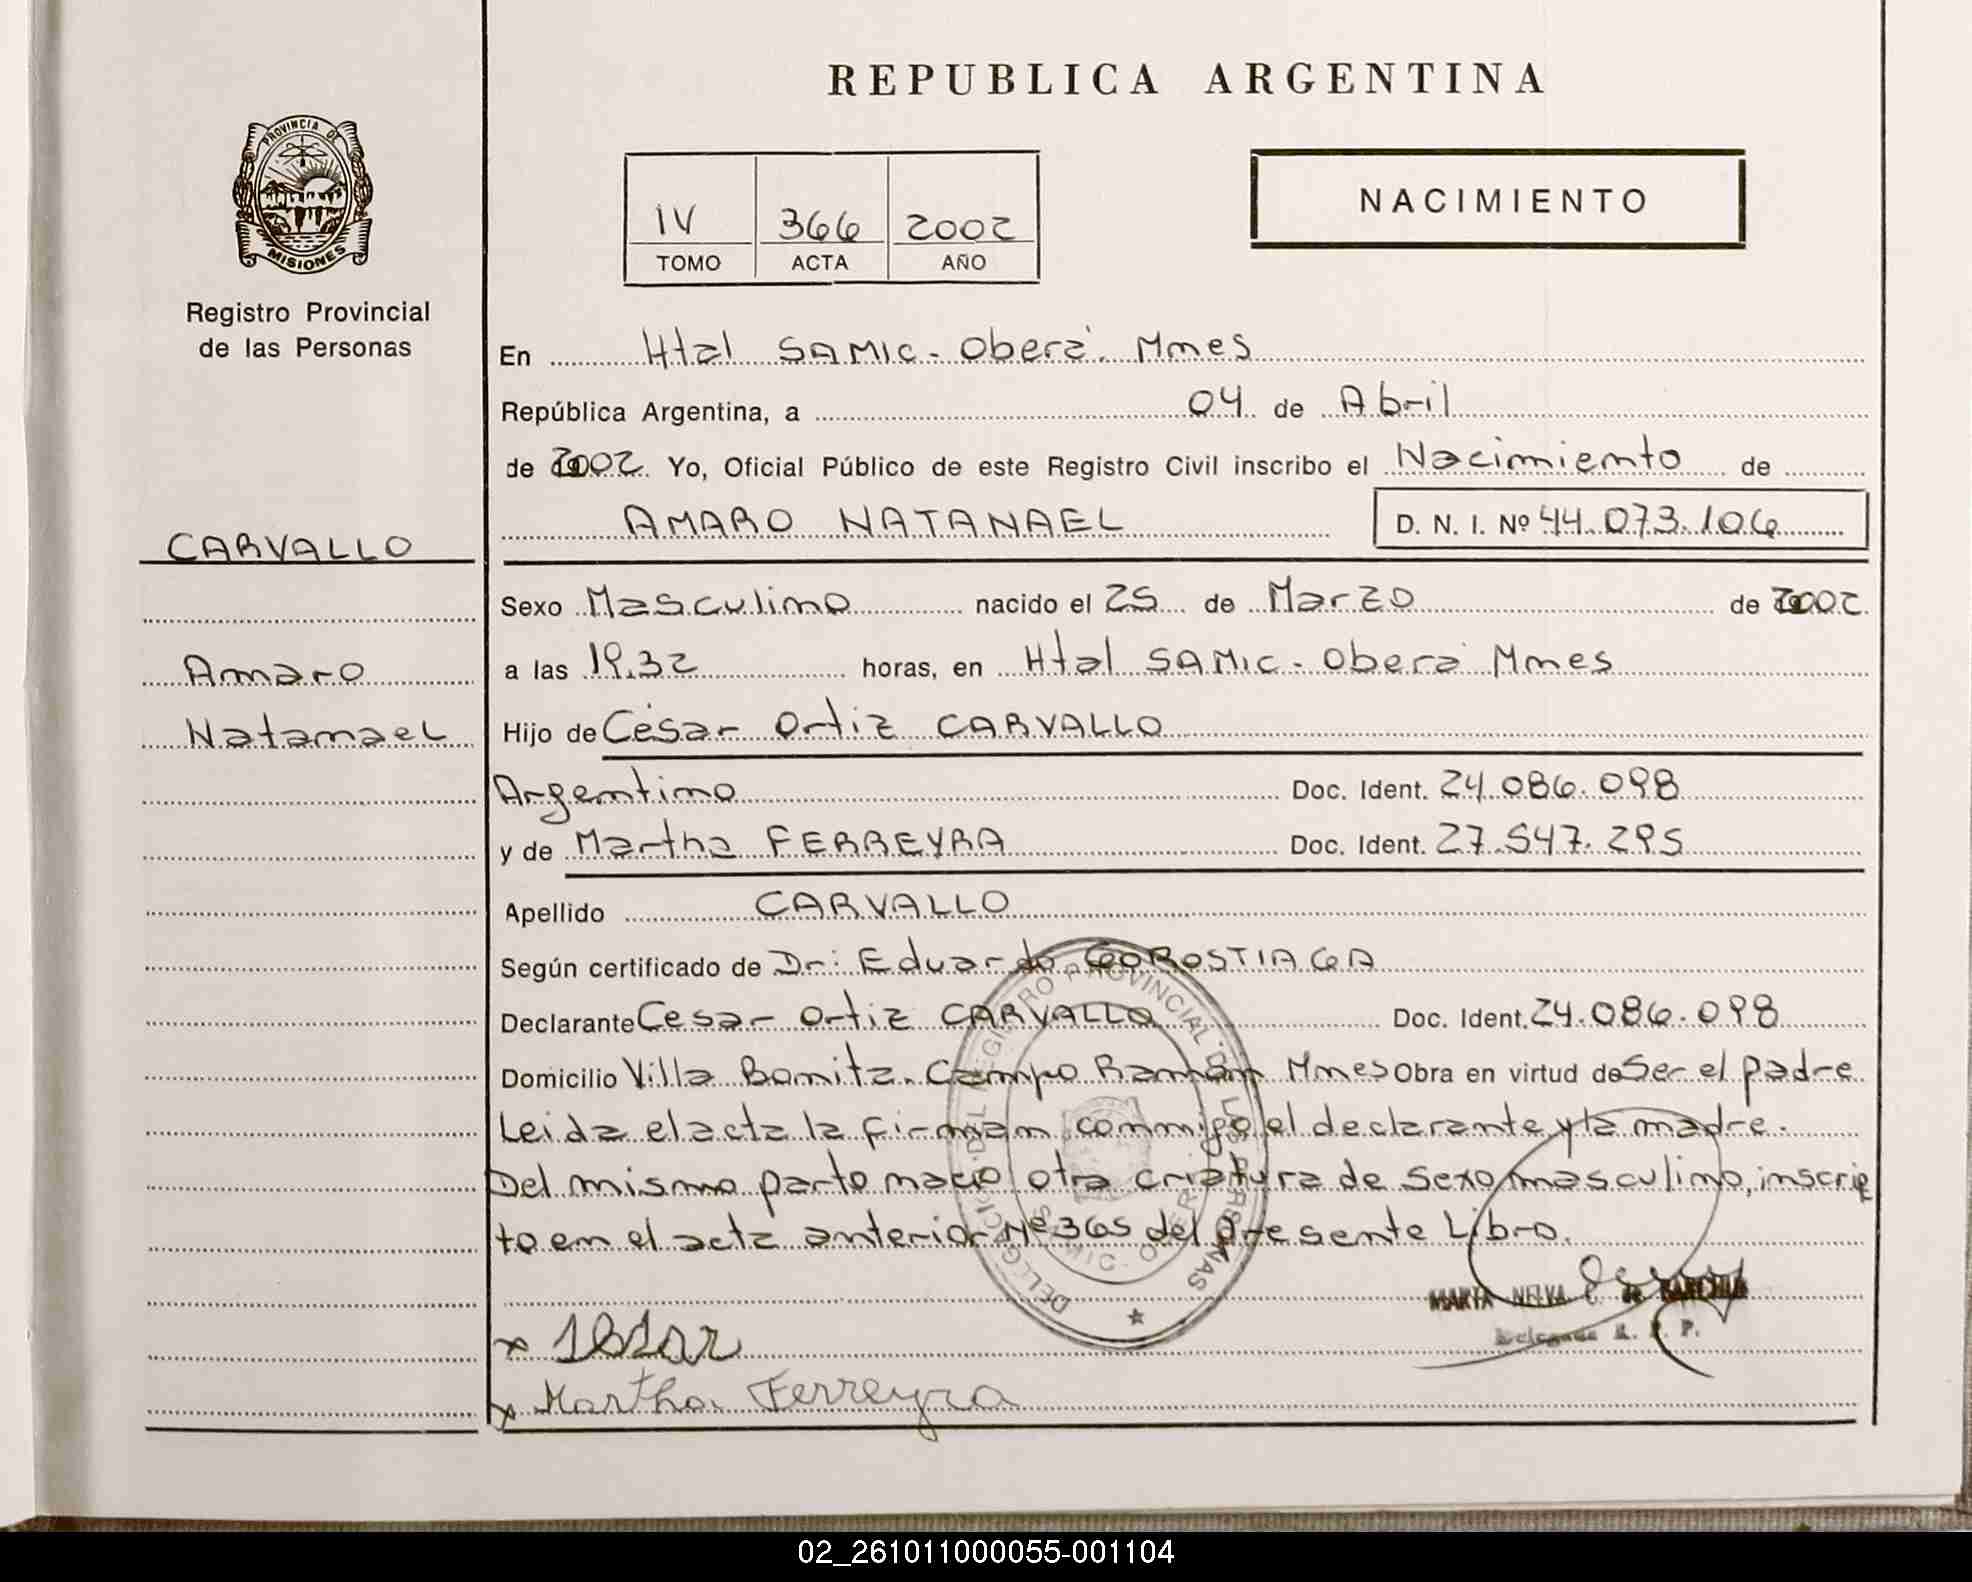 REPUBLICA ARGENTINA
PROVINCIA DE
MISIONES
Registro Provincial
de las Personas
IV 366 2002
TOMO ACTA AÑO
NACIMIENTO
En Htal SAMIC - Oberá. Mnes
República Argentina, a 04 de Abril
de 2002. Yo, Oficial Público de este Registro Civil inscribo el Nacimiento de
AMARO NATANAEL D. N. I. Nº 44.073.106
CARVALLO
Sexo Masculino nacido el 25 de Marzo de 2002.
Amaro
a las 19.32 horas, en Htal SAMIC - Oberá Mnes
Natanael
Hijo de César Ortiz CARVALLO
Argentino Doc. Ident. 24.086.098
y de Martha FERREYRA Doc. Ident. 27.547.295
Apellido CARVALLO
Según certificado de Dr: Eduardo GOROSTIAGA
Declarante Cesar Ortiz CARVALLO Doc. Ident. 24.086.098
Domicilio Villa Bonita. Campo Ramón Mnes Obra en virtud de Ser el padre
Leida el acta la firman conmigo el declarante y la madre.
Del mismo parto nacio otra criatura de sexo masculino, inscrip
to en el acta anterior Nº 365 del presente Libro.
DELEGACION DEL REGISTRO PROVINCIAL DE LAS PERSONAS
SAMIC - OBERA
MARTA NELVA C. de
Delegada R. P. P.
x
x Martha Ferreyra
02_261011000055-001104